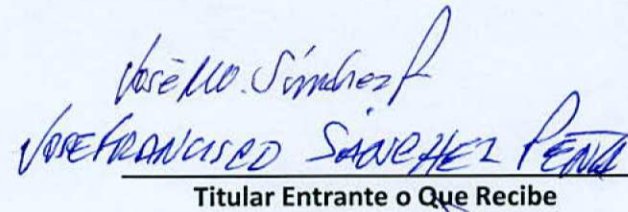 José Mo. Sánchez P.
JOSE FRANCISCO SÁNCHEZ PEÑA
Titular Entrante o Que Recibe